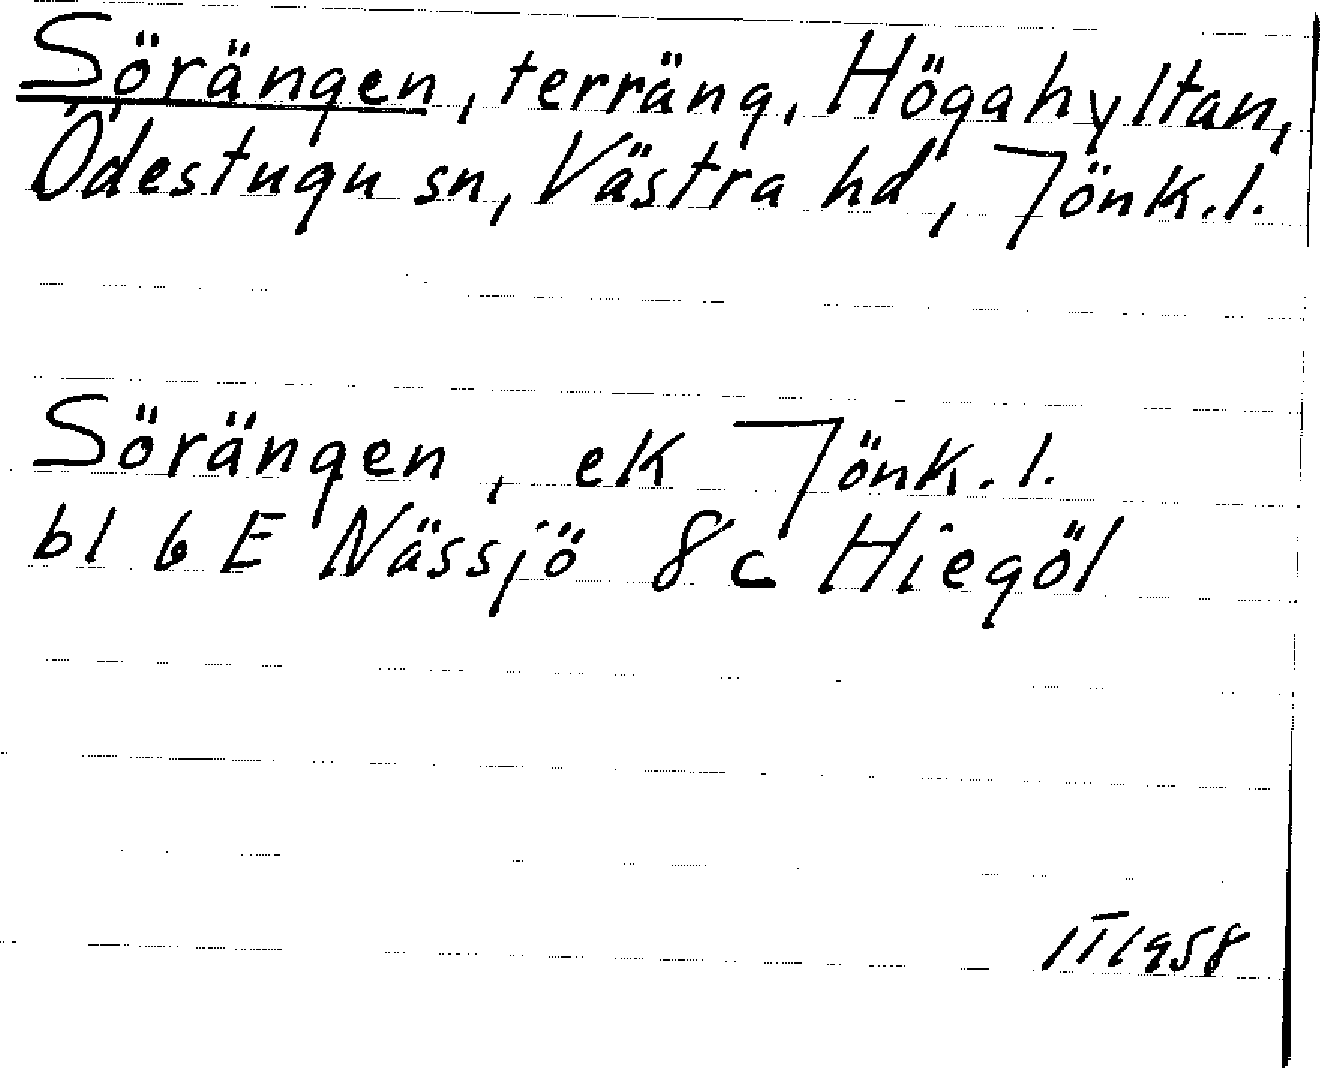 Sörängen, terräng, Högahyltan,
Ödestugu sn, Västra hd, Jönk.l.
Sörängen, ek Jönk.l.
bl 6 E Nässjö 8c Hiegöl
IT1958